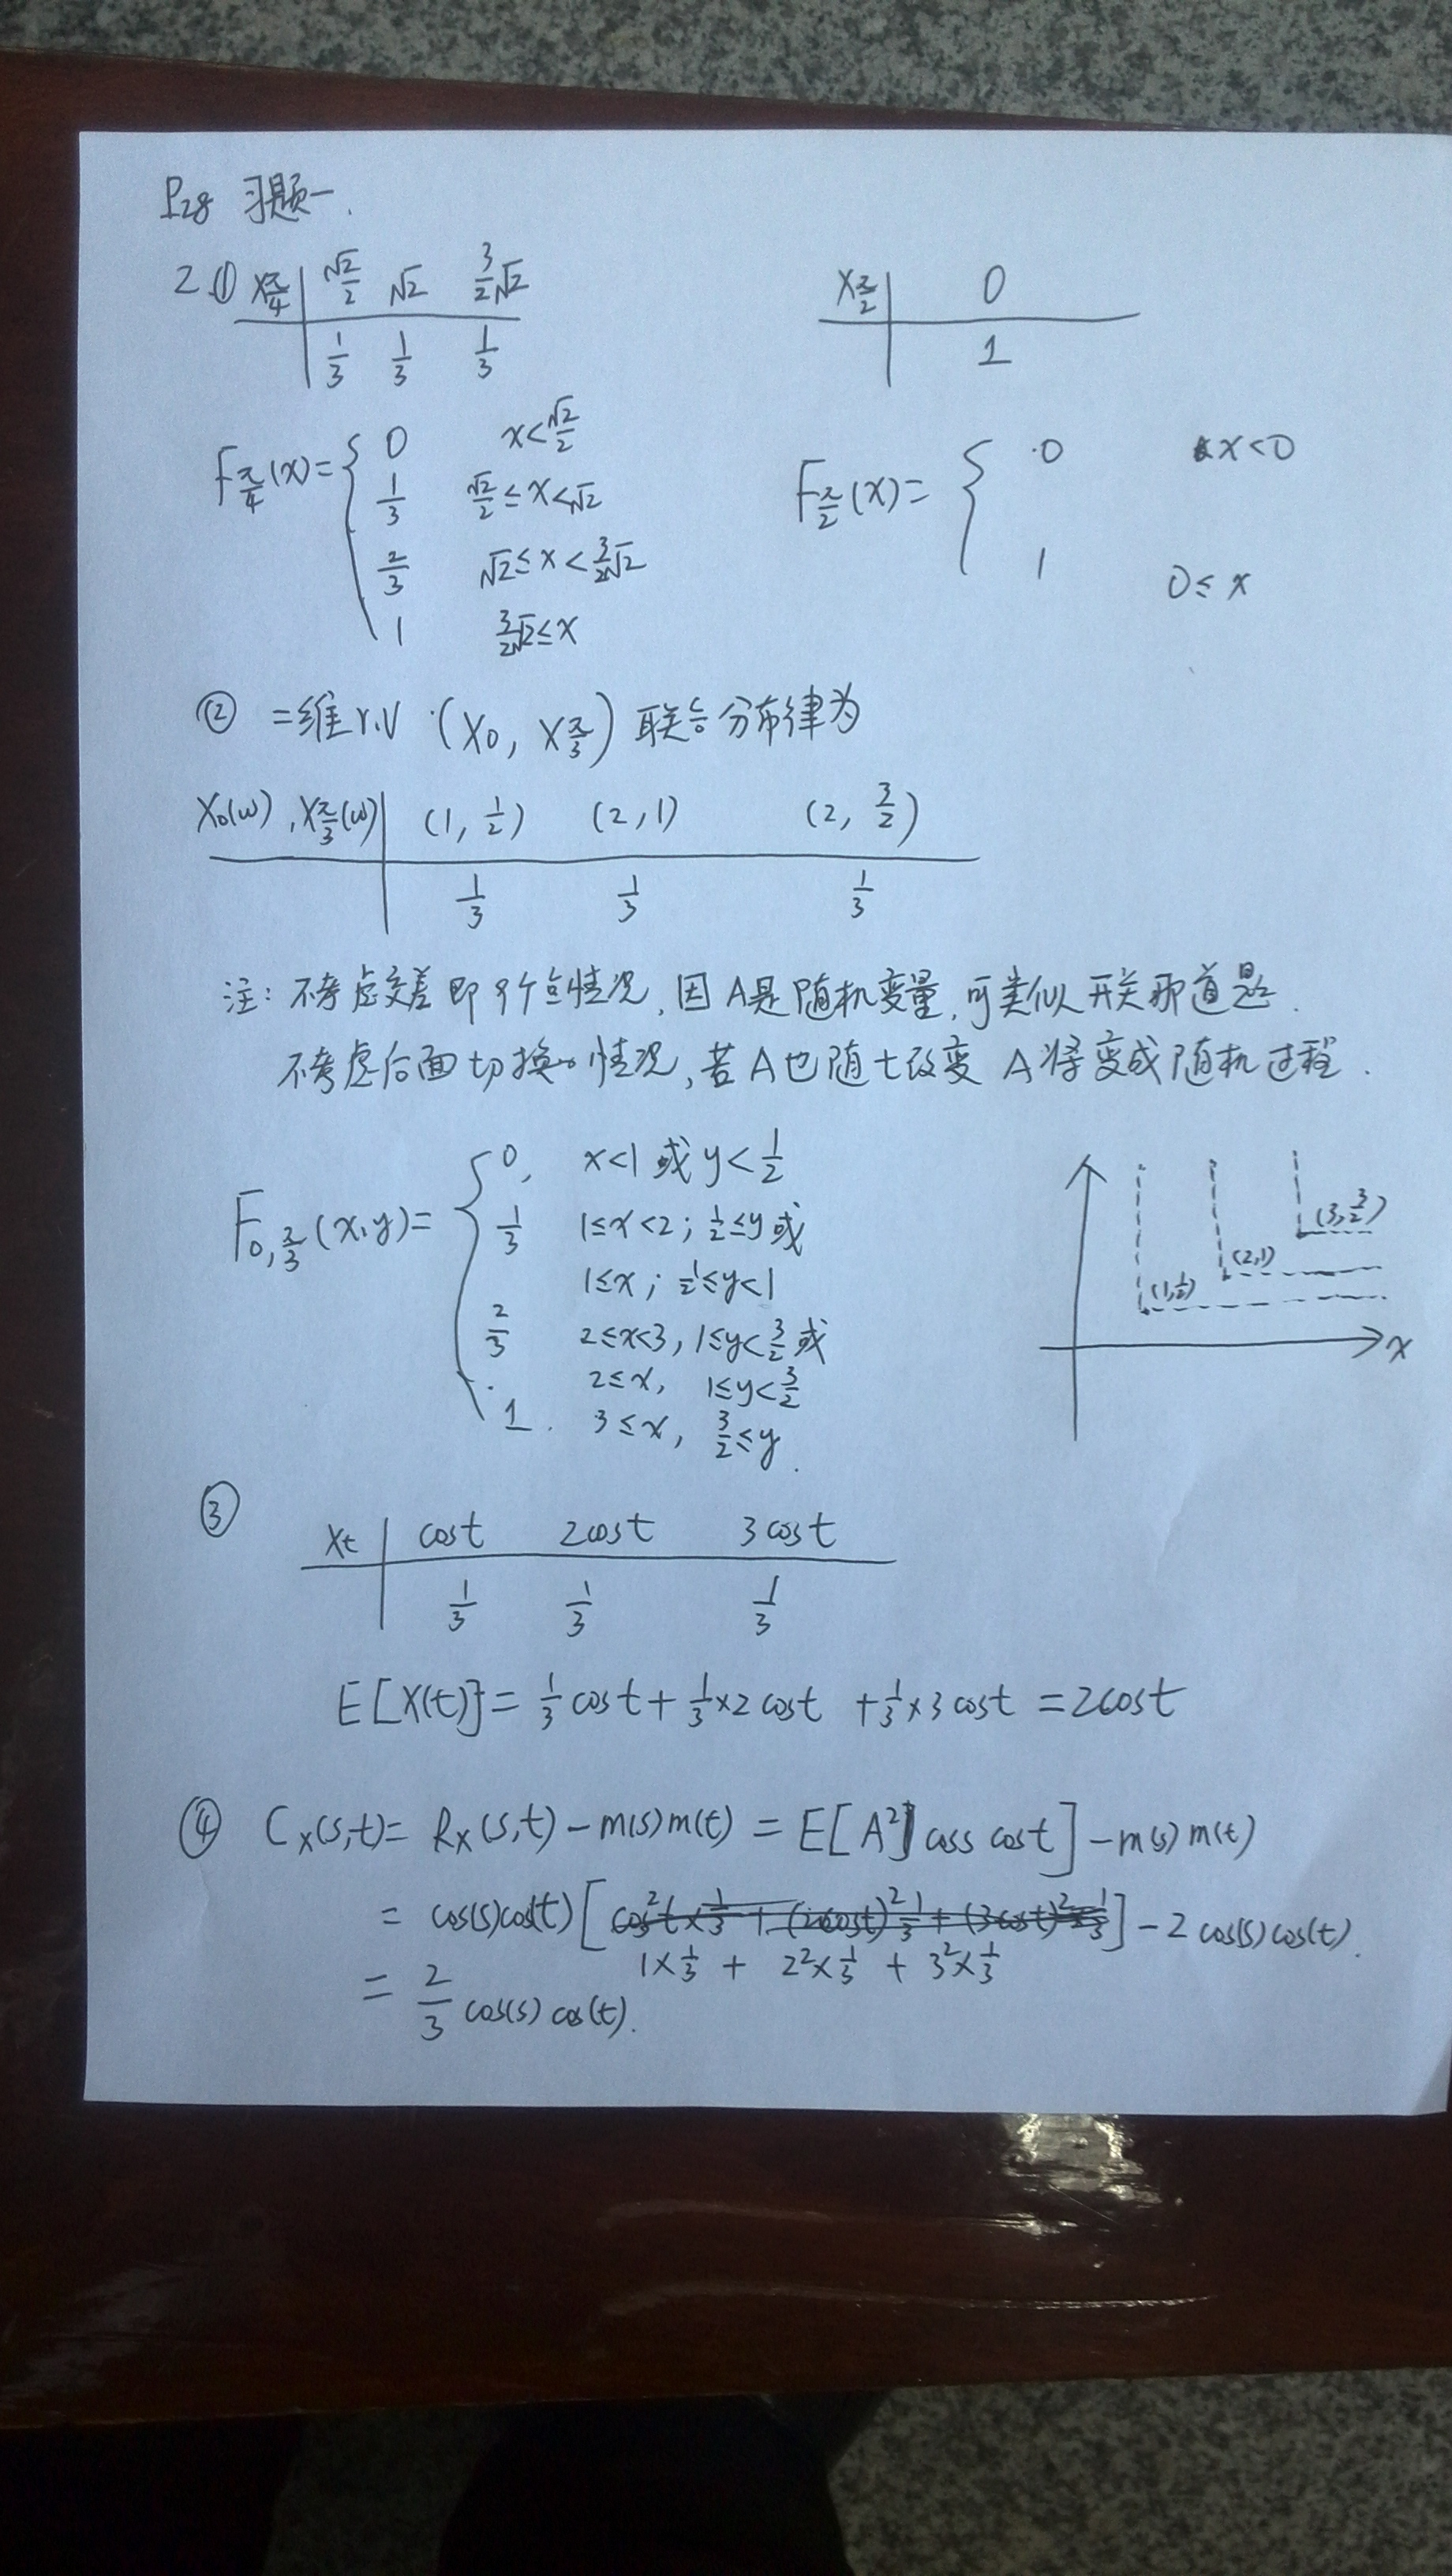 P28 习题一.
2.① Xπ/4 | √2/2 √2 3/2√2
1/3 1/3 1/3
Xπ/2 | 0
1
Fπ/4(x)= { 0 x<√2/2
1/3 √2/2≤x<√2
2/3 √2≤x<3/2√2
1 3/2√2≤x
Fπ/2(x)= { 0 x<0
1 0≤x
② 二维r.v (X0, Xπ/3) 联合分布律为
X0(w),Xπ/3(w) | (1, 1/2) (2, 1) (2, 3/2)
1/3 1/3 1/3
注: 不考虑交差即9个点情况,因A是随机变量,可类似开关那道题.
不考虑后面切换的情况,若A也随t改变 A将变成随机过程.
F0,π/3(x,y)= { 0, x<1 或 y<1/2
1/3 1≤x<2; 1/2≤y或
1≤x; 1/2≤y<1
2/3 2≤x<3, 1≤y<3/2 或
2≤x, 1≤y<3/2
1. 3≤x, 3/2≤y.
(3,3/2)
(2,1)
(1,1/2)
x
③ Xt | cost 2cost 3cost
1/3 1/3 1/3
E[X(t)]= 1/3cost+1/3×2cost +1/3×3cost =2cost
④ Cx(s,t)= Rx(s,t)-m(s)m(t) = E[A² coss cost]-m(s)m(t)
= cos(s)cos(t)[cos²t×1/3+(2cost)²1/3+(3cost)²×1/3]-2cos(s)cos(t).
1×1/3 + 2²×1/3 + 3²×1/3
= 2/3 cos(s)cos(t).